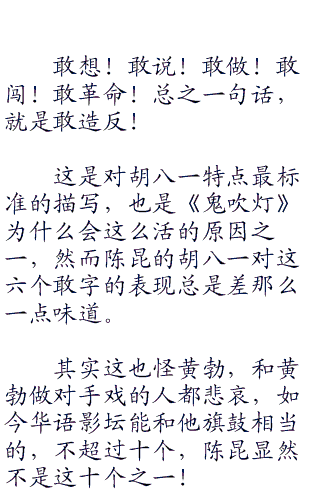 敢想！敢说！敢做！敢
闯！敢革命！总之一句话，
就是敢造反！
这是对胡八一特点最标
准的描写，也是《鬼吹灯》
为什么会这么活的原因之
一，然而陈昆的胡八一对这
六个敢字的表现总是差那么
一点味道。
其实这也怪黄勃，和黄
勃做对手戏的人都悲哀，如
今华语影坛能和他旗鼓相当
的，不超过十个，陈昆显然
不是这十个之一！